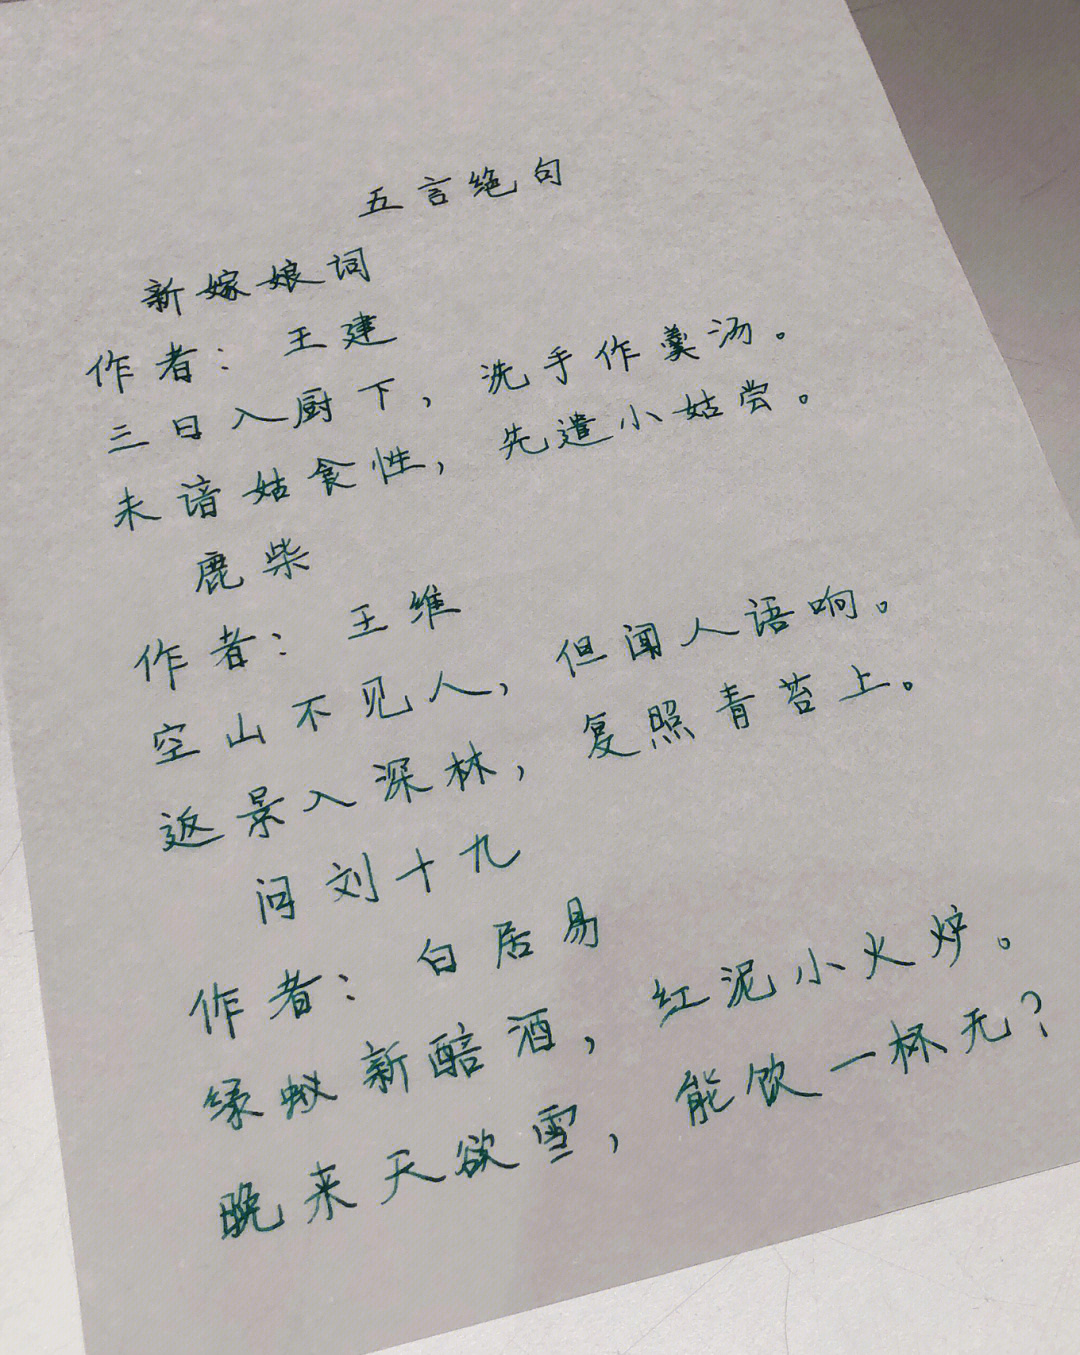 五言绝句
新嫁娘词
作者：王建
三日入厨下，洗手作羹汤。
未谙姑食性，先遣小姑尝。
鹿柴
作者：王维
空山不见人，但闻人语响。
返景入深林，复照青苔上。
问刘十九
作者：白居易
绿蚁新醅酒，红泥小火炉。
晚来天欲雪，能饮一杯无？